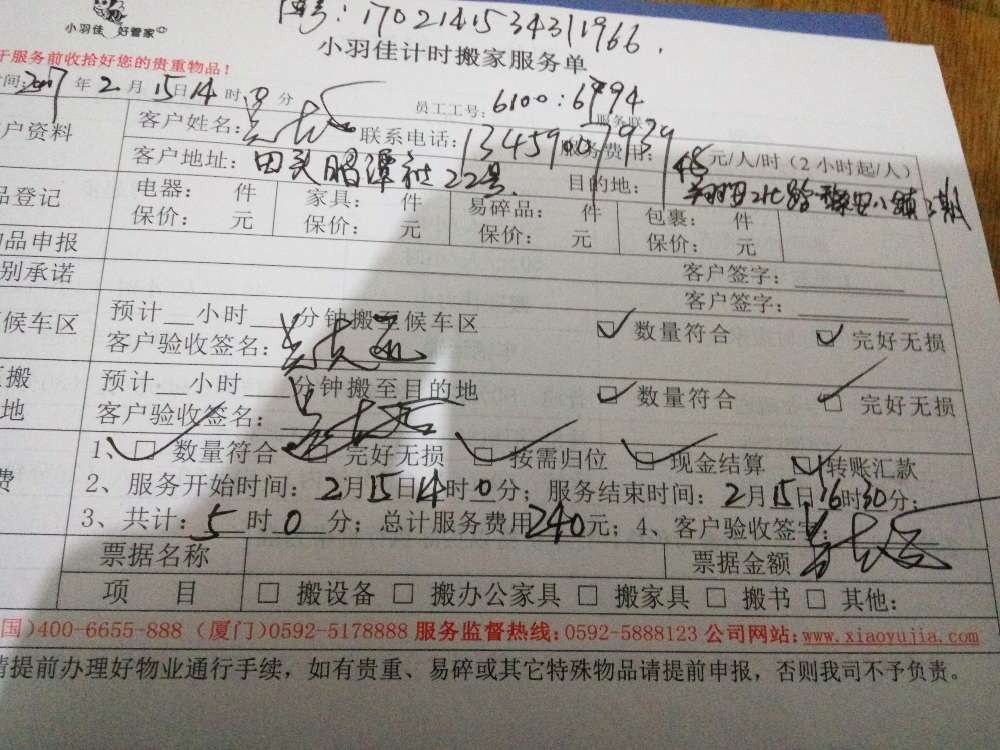 小羽佳 好管家
单号:170214153431966.
小羽佳计时搬家服务单
于服务前收拾好您的贵重物品!
时间:2017年2月15日14时0分 员工工号:6100:6794 服务联
户资料 客户姓名: 联系电话:13459007979 服务费用:48元/人/时(2小时起/人)
客户地址:田头 潭社22号. 目的地:
品登记 电器: 件 家具: 件 易碎品: 件 包裹: 件
保价: 元 保价: 元 保价: 元 保价: 元
物品申报 客户签字:
别承诺 客户签字:
候车区 预计__小时__分钟搬至候车区 数量符合 完好无损
客户验收签名:
搬 预计__小时__分钟搬至目的地 数量符合 完好无损
地 客户验收签名:
1、 数量符合 完好无损 按需归位 现金结算 转账汇款
费 2、服务开始时间:2月15日14时0分;服务结束时间:2月15日16时30分;
3、共计:5时0分;总计服务费用240元;4、客户验收签字:
票据名称 票据金额
项 目 □ 搬设备 □ 搬办公家具 □ 搬家具 □ 搬书 □ 其他:
国)400-6655-888 (厦门)0592-5178888 服务监督热线:0592-5888123 公司网站:www.xiaoyujia.com
请提前办理好物业通行手续,如有贵重、易碎或其它特殊物品请提前申报,否则我司不予负责。